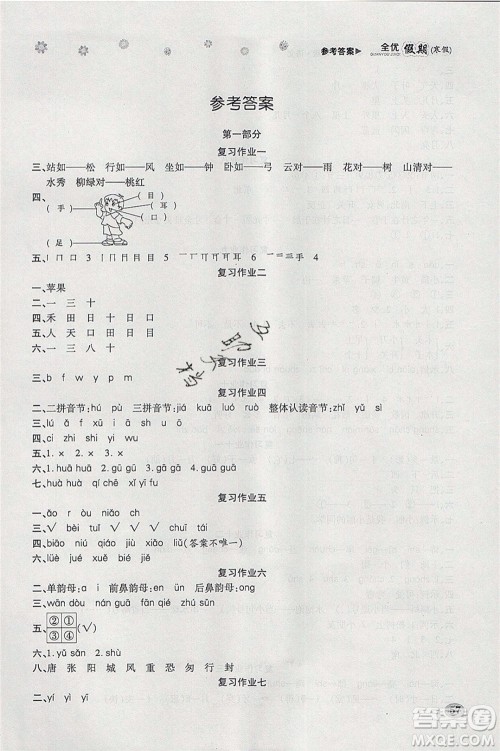 参考答案▶ 全优 假期 (寒假)
参考答案
第一部分
复习作业一
三、站如——松 行如——风 坐如——钟 卧如——弓 云对——雨 花对——树 山清对——
水秀 柳绿对——桃红
四、
(手) (目)
(耳)
(口)
(足)
复习作业二
一、苹果
二、一 三 十
四、禾 田 日 十 日 口
五、人 天 口 田 日 火
六、一 三 八 十
复习作业三
三、b f w y p t
复习作业四
二、二拼音节:hú pù 三拼音节:jiá kuà luó ruò 整体认读音节:zhǐ yǔ sì
四、ci zhi shi yi wu yu
五、1. × 2. × 3. √ 4. ×
六、1. huā huā 2. gū gū 3. xiā xiā 4. guā guā
七、huǒ bā qí chē xǐ yī fú
复习作业五
一、āo rǔ ùn iǎo ch
四、biǎo niú qiú xié (答案不唯一)
六、lüè jué yuè piào
复习作业六
二、单韵母:a i 前鼻韵母:en in 后鼻韵母:ong
三、wān dòu nán guā fēng zhēng zhú sǔn
五、②①
④③ (√)
六、1. yǔ sǎn 2. shù yè
八、唐 张 阳 城 风 重 恐 匆 行 封
复习作业七
二、yí yì yī
57
互助文档
答案圈
MXQE.COM